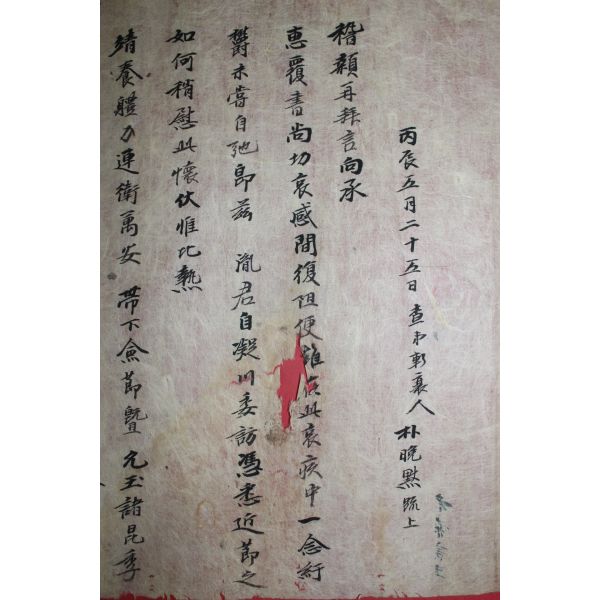 丙辰五月二十五日 査弟斬衰人 朴晩黙疏上
稽顙再拜言向承
惠覆書尚切哀感間復阻便 在此哀疚中一念紆
鬱未嘗自弛卽玆 胤君自凝川委訪憑悉近節之
如何稍慰此懷伏惟比熱
靖養軆力連衛萬安 帶下僉節曁 允玉諸昆季